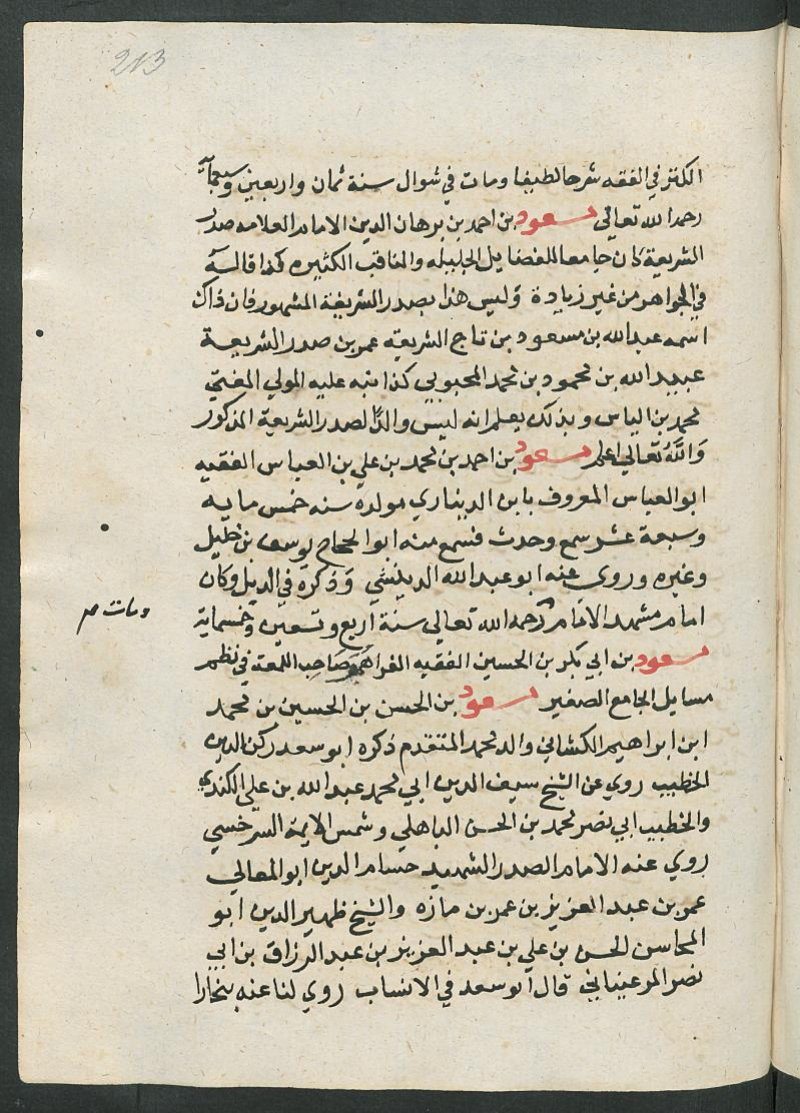 213
الكنز في الفقه شرحا لطيفا ومات في شوال سنة ثمان واربعين وسبعماية
رحمه الله تعالى مسعود بن احمد بن برهان الدين الامام العلامه صدر
الشريعة كان جامعا للفضايل الجليله والمناقب الكثيره كذا قاله
في الجواهر من غير زيادة وليس هذا بصدر الشريعة المشهور فان ذاك
اسمه عبدالله بن مسعود بن تاج الشريعة عمر بن صدر الشريعة
عبيد الله بن محمود بن محمد المحبوبي كذا نبه عليه المولي المفتي
محمد بن الياس وبذلك يعلم انه ليس والدًا لصدر الشريعة المذكور
والله تعالي اعلم مسعود بن احمد بن محمد بن علي بن العباس الفقيه
ابو العباس المعروف بابن الديناري مولده سنه خمس مايه
وسبعة عشر سمع وحدث فسمع منه ابو الحجاج يوسف بن خليل
وغيره وروي عنه ابو عبد الله الدبيثي وذكره في الذيل وكان
امام مشهد الامام رحمه الله تعالي سنة اربع وتسعين وخمسماية
ومات صح
مسعود بن ابي بكر بن الحسين الفقيه الفراهي صاحب اللمعة في نظم
مسايل الجامع الصغير مسعود بن الحسن بن الحسين بن محمد
ابن ابراهيم الكشاني والد محمد المتقدم ذكره ابو سعد ركن الدين
الخطيب روي عن الشيخ سيف الدين ابي محمد عبدالله بن علي الكندي
والخطيب ابي نصر محمد بن الحسن الباهلي وشمس الايمة السرخسي
روي عنه الامام الصدر الشهيد حسام الدين ابو المعالي
عمر بن عبد العزيز بن عمر بن مازه والشيخ ظهير الدين ابو
المحاسن الحسن بن علي بن عبد العزيز بن عبد الرزاق بن ابي
نصر المرغيناني قال ابو سعد في الانساب روي لنا عنه بنجارا